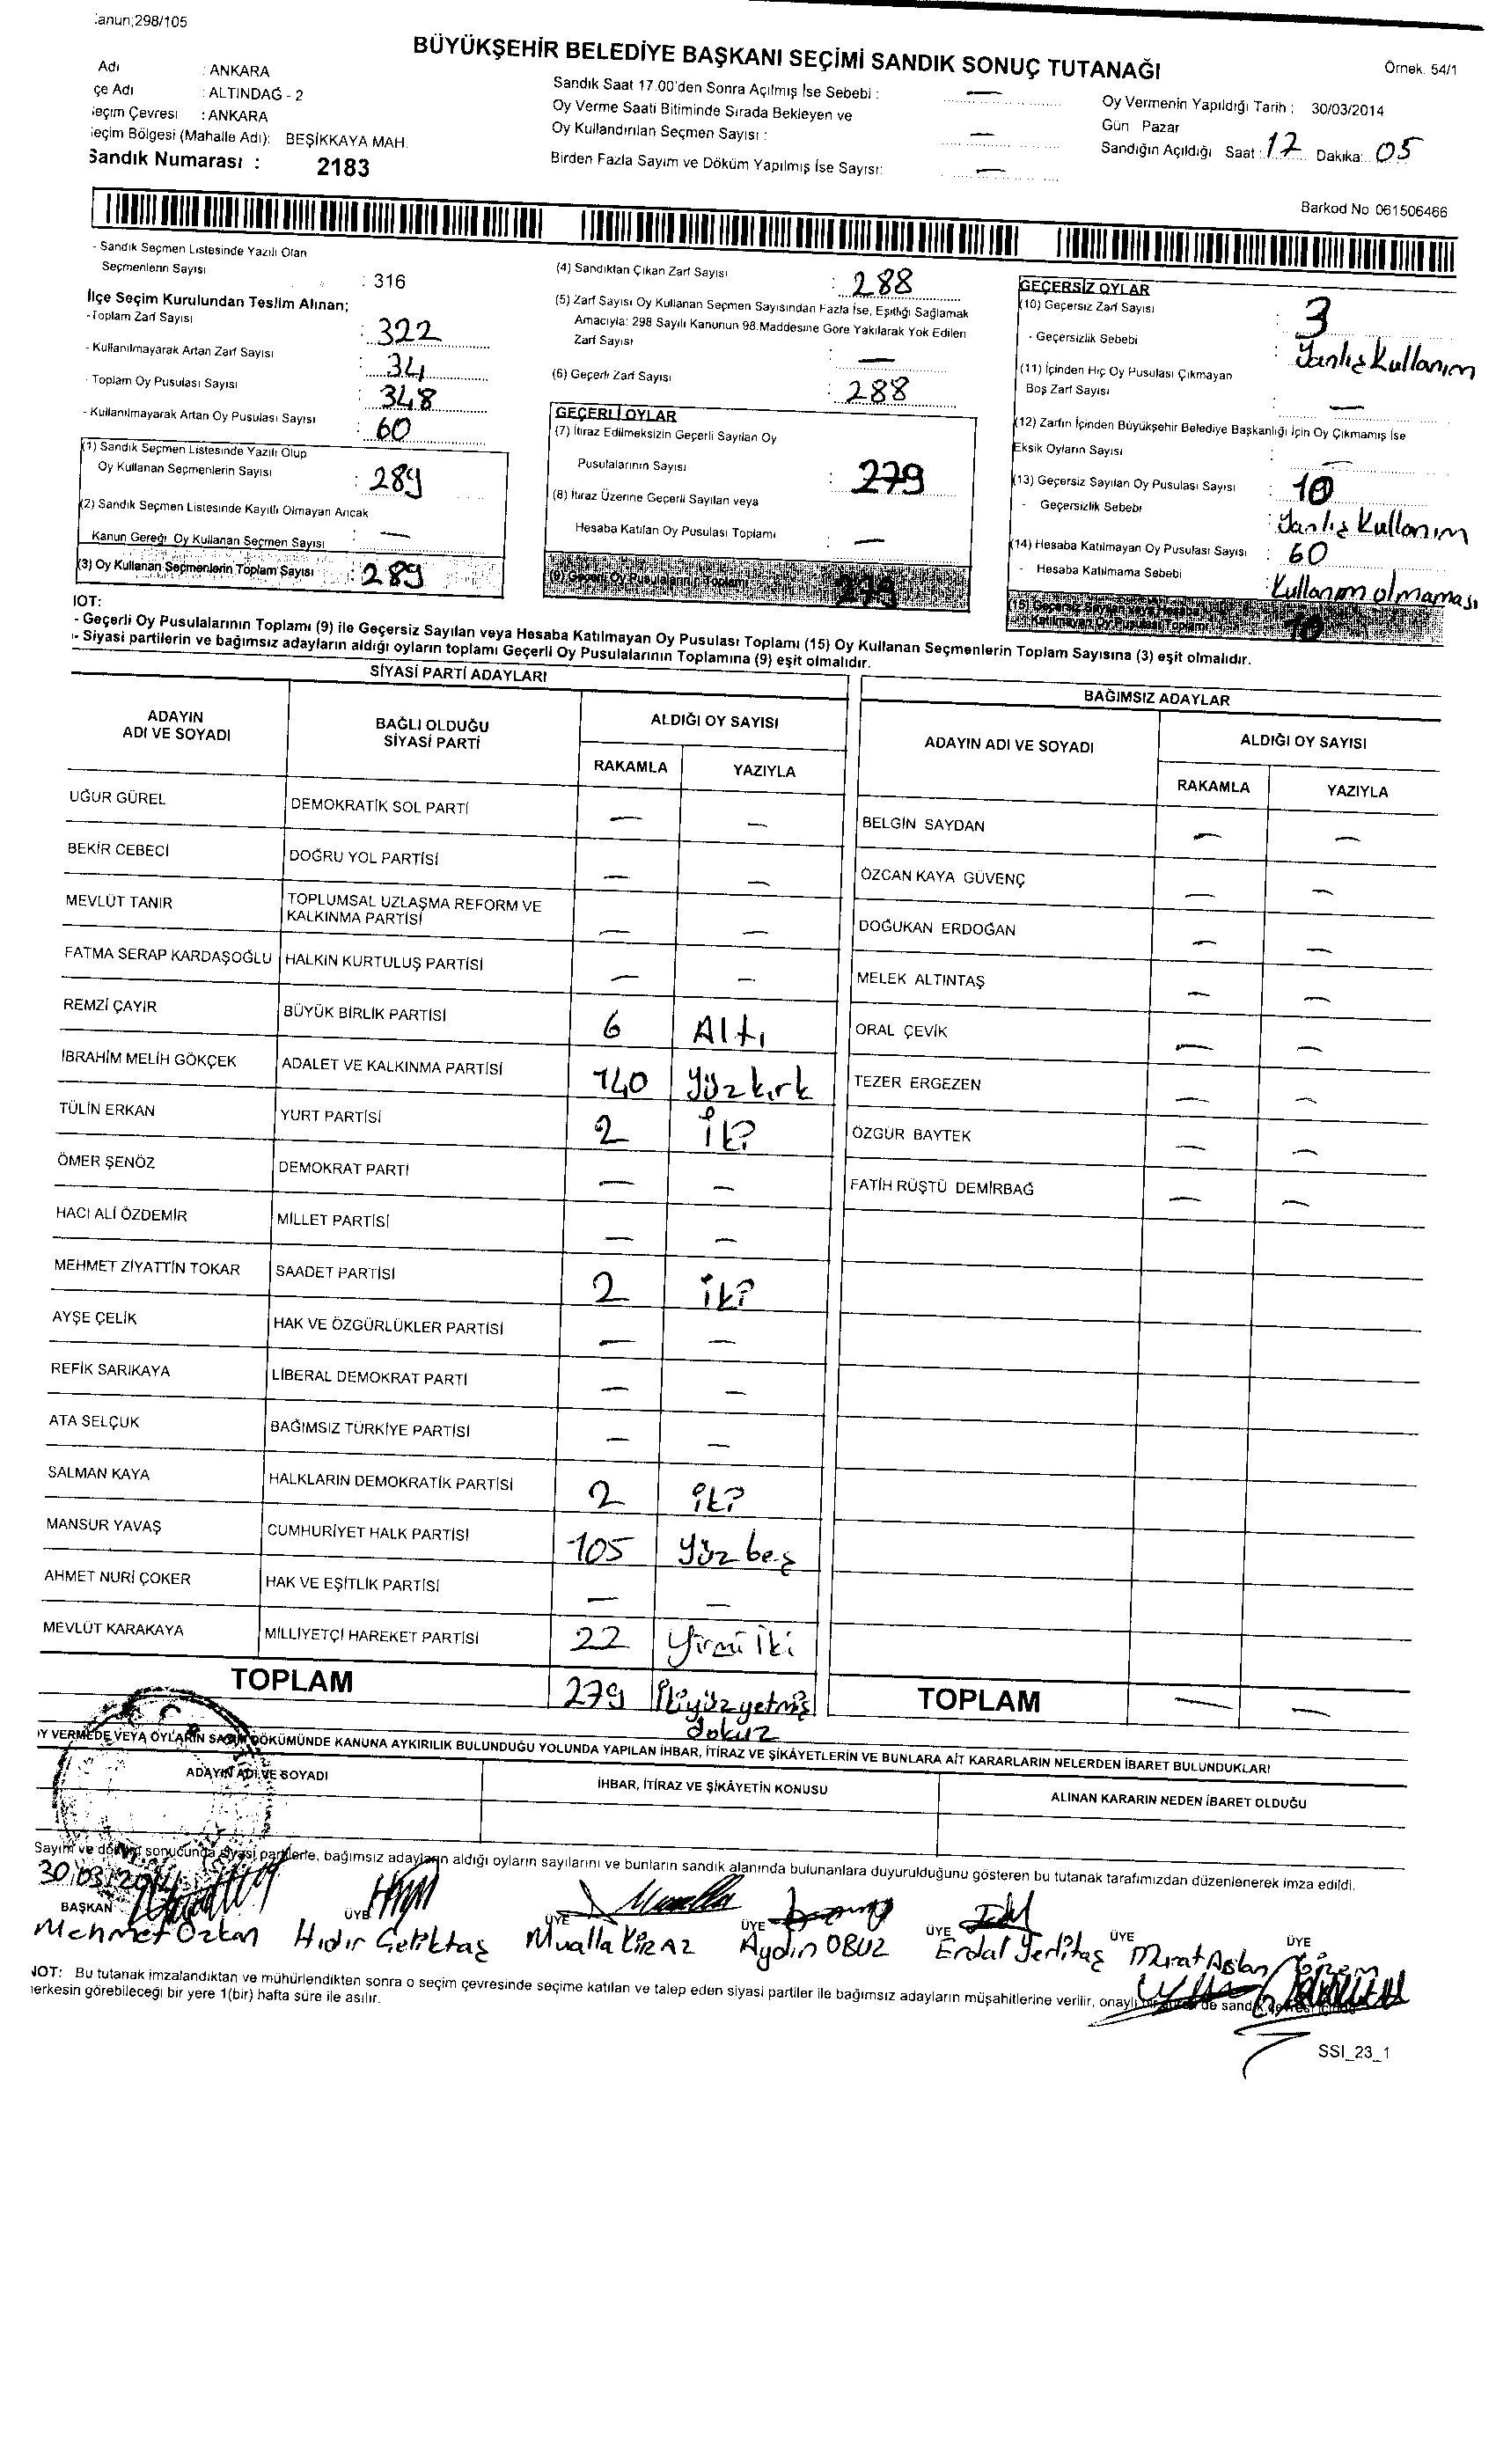 anun;298/105
BÜYÜKŞEHİR BELEDİYE BAŞKANI SEÇİMİ SANDIK SONUÇ TUTANAĞI
Örnek. 54/1
Adı : ANKARA
çe Adı : ALTINDAĞ - 2
eçim Çevresi : ANKARA
eçim Bölgesi (Mahalle Adı): BEŞİKKAYA MAH.
Sandık Numarası : 2183
Sandık Saat 17.00'den Sonra Açılmış İse Sebebi : —
Oy Verme Saati Bitiminde Sırada Bekleyen ve
Oy Kullandırılan Seçmen Sayısı : —
Birden Fazla Sayım ve Döküm Yapılmış İse Sayısı: —
Oy Vermenin Yapıldığı Tarih : 30/03/2014
Gün Pazar
Sandığın Açıldığı Saat : 17 Dakika: 05
Barkod No 061506466
- Sandık Seçmen Listesinde Yazılı Olan
Seçmenlerin Sayısı : 316
İlçe Seçim Kurulundan Teslim Alınan;
-Toplam Zarf Sayısı : 322
- Kullanılmayarak Artan Zarf Sayısı : 34
- Toplam Oy Pusulası Sayısı : 348
- Kullanılmayarak Artan Oy Pusulası Sayısı : 60
(1) Sandık Seçmen Listesinde Yazılı Olup
Oy Kullanan Seçmenlerin Sayısı : 289
(2) Sandık Seçmen Listesinde Kayıtlı Olmayan Ancak
Kanun Gereği Oy Kullanan Seçmen Sayısı : —
(3) Oy Kullanan Seçmenlerin Toplam Sayısı : 289
(4) Sandıktan Çıkan Zarf Sayısı : 288
(5) Zarf Sayısı Oy Kullanan Seçmen Sayısından Fazla İse, Eşitliği Sağlamak
Amacıyla: 298 Sayılı Kanunun 98.Maddesine Göre Yakılarak Yok Edilen
Zarf Sayısı : —
(6) Geçerli Zarf Sayısı : 288
GEÇERLİ OYLAR
(7) İtiraz Edilmeksizin Geçerli Sayılan Oy
Pusulalarının Sayısı : 279
(8) İtiraz Üzerine Geçerli Sayılan veya
Hesaba Katılan Oy Pusulası Toplamı : —
(9) Geçerli Oy Pusulalarının Toplamı 279
GEÇERSİZ OYLAR
(10) Geçersiz Zarf Sayısı : 3
- Geçersizlik Sebebi : Yanlış Kullanım
(11) İçinden Hiç Oy Pusulası Çıkmayan
Boş Zarf Sayısı : —
(12) Zarfın İçinden Büyükşehir Belediye Başkanlığı İçin Oy Çıkmamış İse
Eksik Oyların Sayısı : —
(13) Geçersiz Sayılan Oy Pusulası Sayısı : 10
- Geçersizlik Sebebi : Yanlış Kullanım
(14) Hesaba Katılmayan Oy Pusulası Sayısı : 60
- Hesaba Katılmama Sebebi : Kullanım olmaması
(15) Geçersiz Sayılan veya Hesaba
Katılmayan Oy Pusulası Toplamı 10
NOT:
- Geçerli Oy Pusulalarının Toplamı (9) ile Geçersiz Sayılan veya Hesaba Katılmayan Oy Pusulası Toplamı (15) Oy Kullanan Seçmenlerin Toplam Sayısına (3) eşit olmalıdır.
- Siyasi partilerin ve bağımsız adayların aldığı oyların toplamı Geçerli Oy Pusulalarının Toplamına (9) eşit olmalıdır.
SİYASİ PARTİ ADAYLARI
ADAYIN ADI VE SOYADI BAĞLI OLDUĞU SİYASİ PARTİ ALDIĞI OY SAYISI
RAKAMLA YAZIYLA
UĞUR GÜREL DEMOKRATİK SOL PARTİ — —
BEKİR CEBECİ DOĞRU YOL PARTİSİ — —
MEVLÜT TANIR TOPLUMSAL UZLAŞMA REFORM VE KALKINMA PARTİSİ — —
FATMA SERAP KARDAŞOĞLU HALKIN KURTULUŞ PARTİSİ — —
REMZİ ÇAYIR BÜYÜK BİRLİK PARTİSİ 6 Altı
İBRAHİM MELİH GÖKÇEK ADALET VE KALKINMA PARTİSİ 140 Yüzkırk
TÜLİN ERKAN YURT PARTİSİ 2 İki
ÖMER ŞENÖZ DEMOKRAT PARTİ — —
HACI ALİ ÖZDEMİR MİLLET PARTİSİ — —
MEHMET ZİYATTİN TOKAR SAADET PARTİSİ 2 iki
AYŞE ÇELİK HAK VE ÖZGÜRLÜKLER PARTİSİ — —
REFİK SARIKAYA LİBERAL DEMOKRAT PARTİ — —
ATA SELÇUK BAĞIMSIZ TÜRKİYE PARTİSİ — —
SALMAN KAYA HALKLARIN DEMOKRATİK PARTİSİ 2 iki
MANSUR YAVAŞ CUMHURİYET HALK PARTİSİ 105 Yüz beş
AHMET NURİ ÇOKER HAK VE EŞİTLİK PARTİSİ — —
MEVLÜT KARAKAYA MİLLİYETÇİ HAREKET PARTİSİ 22 Yirmi iki
TOPLAM 279 İkiyüzyetmiş dokuz
BAĞIMSIZ ADAYLAR
ADAYIN ADI VE SOYADI ALDIĞI OY SAYISI
RAKAMLA YAZIYLA
BELGİN SAYDAN — —
ÖZCAN KAYA GÜVENÇ — —
DOĞUKAN ERDOĞAN — —
MELEK ALTINTAŞ — —
ORAL ÇEVİK — —
TEZER ERGEZEN — —
ÖZGÜR BAYTEK — —
FATİH RÜŞTÜ DEMİRBAĞ — —
TOPLAM — —
OY VERMEDE VEYA OYLARIN SAYIM DÖKÜMÜNDE KANUNA AYKIRILIK BULUNDUĞU YOLUNDA YAPILAN İHBAR, İTİRAZ VE ŞİKÂYETLERİN VE BUNLARA AİT KARARLARIN NELERDEN İBARET BULUNDUKLARI
ADAYIN ADI VE SOYADI İHBAR, İTİRAZ VE ŞİKÂYETİN KONUSU ALINAN KARARIN NEDEN İBARET OLDUĞU
Sayım ve döküm sonucunda siyasi partilerle, bağımsız adayların aldığı oyların sayılarını ve bunların sandık alanında bulunanlara duyurulduğunu gösteren bu tutanak tarafımızdan düzenlenerek imza edildi.
30/03/2014
BAŞKAN ÜYE ÜYE ÜYE ÜYE ÜYE ÜYE
Mehmet Özkan Hıdır Geliktaş Mualla KİRAZ Aydın OBUZ Erdal Yerlitaş Murat Aslan
NOT: Bu tutanak imzalandıktan ve mühürlendikten sonra o seçim çevresinde seçime katılan ve talep eden siyasi partiler ile bağımsız adayların müşahitlerine verilir, onaylı bir sureti de sandık çevresi içinde
herkesin görebileceği bir yere 1(bir) hafta süre ile asılır.
SSI_23_1